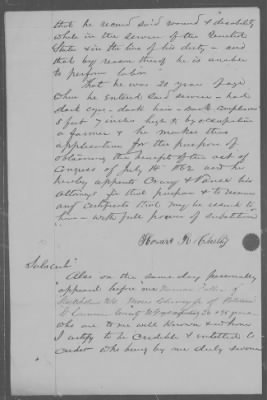 that he received said wound & disability
while in the service of the United
States & in the line of his duty - and
that by reason thereof he is unable
to perform labor
That he was 20 years of age
when he entered said service - had
dark eyes - dark hair - dark complexion
5 feet 7 inches high & by occupation
a farmer & he makes this
application for the purpose of
obtaining the benefit of the act of
Congress of July 14th 1862 and he
hereby appoints &
Attorneys for that purpose & to receive
any certificate that may be issued to
him - with full powers of substitution
Howard
Also on the same day personally
appeared before me
of
County
who are to me well known & whom
I certify to be credible & entitled to
credit who being by me duly sworn